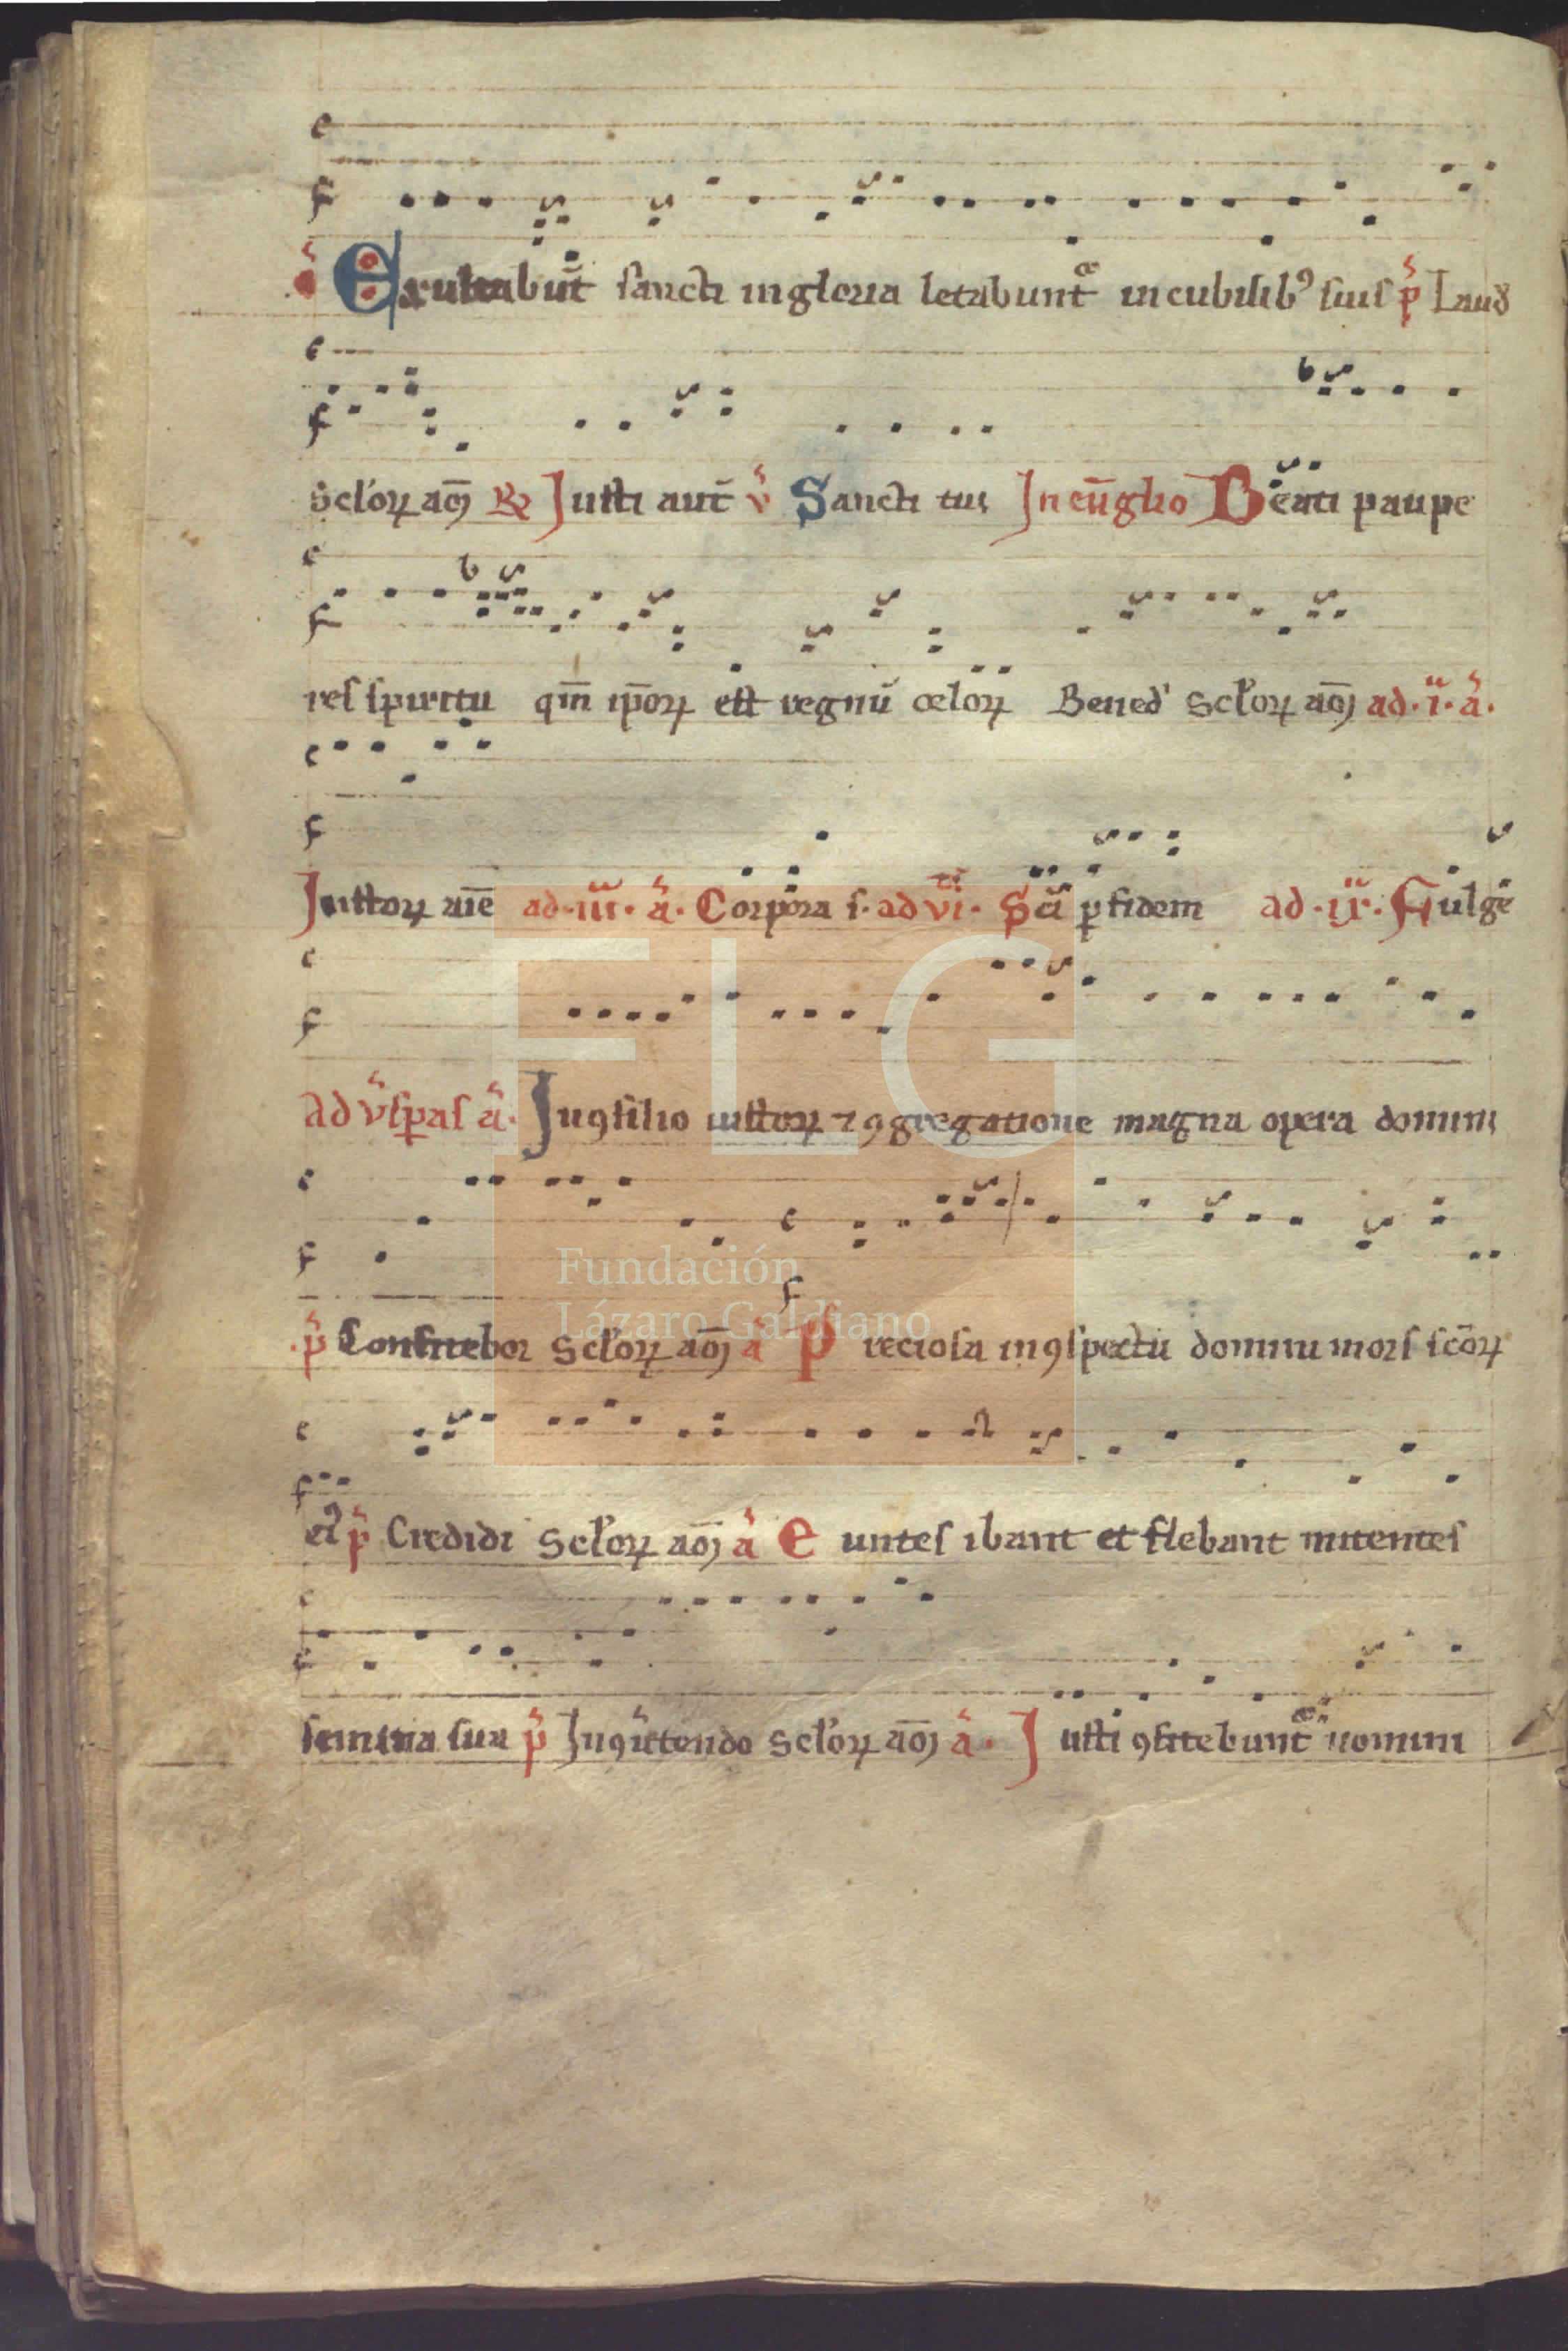 Exultabunt̄ sancti in gloria letabunt᷑ in cubilibꝰ suis p̄ Laud
Sc̄loꝝ am̄ ℟ Justi aut̄ v̄ Sancti tui In eūglio Beati paupe
res spiritu qm̄ ip̄oꝝ est regnū celoꝝ Bened' Sc̄loꝝ am̄ ad .i. a.
Justoꝝ aīe ad .iii. a. Corpora s. ad vi. Sc̄i ꝑ fidem ad .ix. Fulgē
ad v̄sꝑas a. In ꝯsilio iustoꝝ ⁊ ꝯgregatione magna opera domini
p̄ Confitebor Sc̄loꝝ am̄ a Preciosa in ꝯspectu domini mors sc̄oꝝ
ei' p̄ Credidi Sc̄loꝝ am̄ a Euntes ibant et flebant mitentes
semina sua p̄ In ꝯuertendo Sc̄loꝝ am̄ a. Justi ꝯfitebunt᷑ nomini
FLG
Fundación
Lázaro Galdiano